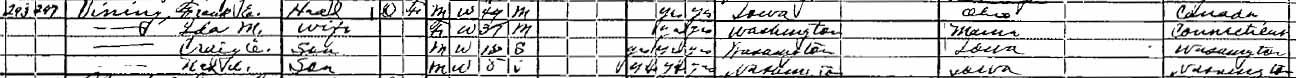 293 297 Vining, Frank E. Head O F M W 44 M yes yes Iowa Ohio Canada
— Ida M. Wife F W 37 M yes yes Washington Maine Connecticut
— Craig E. Son M W 18 S yes yes yes Washington Iowa Washington
— Son M W S yes yes yes Washington Iowa Washington